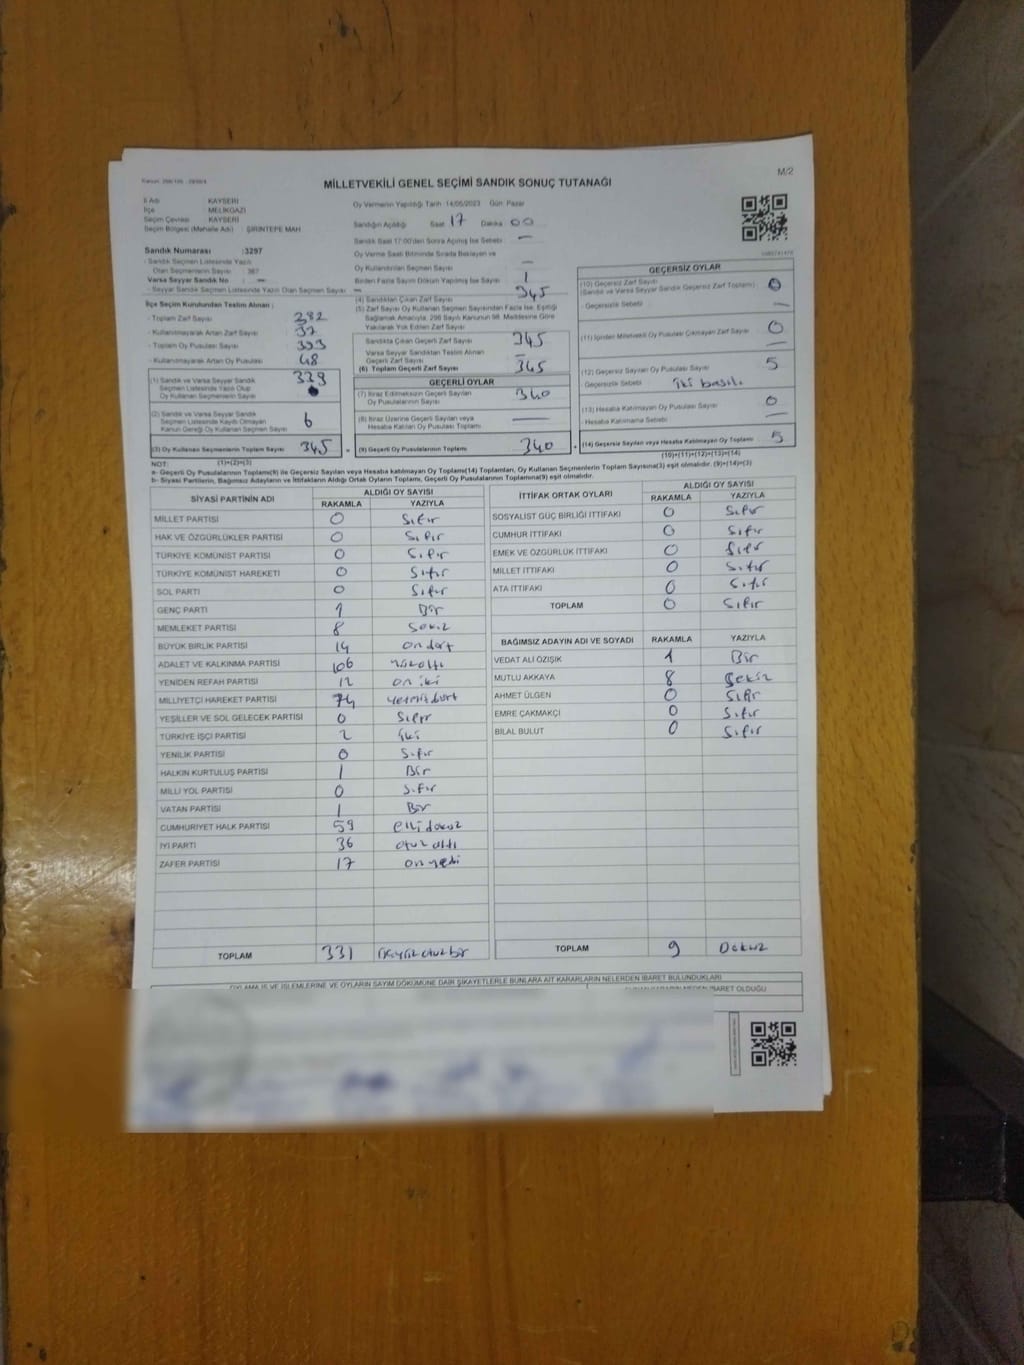 M/2
MİLLETVEKİLİ GENEL SEÇİMİ SANDIK SONUÇ TUTANAĞI
İl Adı KAYSERİ
İlçe MELİKGAZİ
Seçim Çevresi : KAYSERİ
Seçim Bölgesi (Mahalle Adı) ŞİRİNTEPE MAH
Sandık Numarası :3297
- Sandık Seçmen Listesinde Yazılı
Olan Seçmenlerin Sayısı : 367
Varsa Seyyar Sandık No -
- Seyyar Sandık Seçmen Listesinde Yazılı Olan Seçmen Sayısı -
İlçe Seçim Kurulundan Teslim Alınan ;
- Toplam Zarf Sayısı 382
- Kullanılmayarak Artan Zarf Sayısı 37
- Toplam Oy Pusulası Sayısı 393
- Kullanılmayarak Artan Oy Pusulası 48
(1) Sandık ve Varsa Seyyar Sandık
Seçmen Listesinde Yazılı Olup
Oy Kullanan Seçmenlerin Sayısı 339
(2) Sandık ve Varsa Seyyar Sandık
Seçmen Listesinde Kayıtlı Olmayan
Kanun Gereği Oy Kullanan Seçmen Sayısı 6
(3) Oy Kullanan Seçmenlerin Toplam Sayısı 345
(1)+(2)=(3)
Oy Vermenin Yapıldığı Tarih 14/05/2023 Gün: Pazar
Sandığın Açıldığı Saat 17 Dakika 00
Sandık Saat 17:00'den Sonra Açılmış İse Sebebi -
Oy Verme Saati Bitiminde Sırada Bekleyen ve
Oy Kullandırılan Seçmen Sayısı -
Birden Fazla Sayım Döküm Yapılmış İse Sayısı 1
(4) Sandıktan Çıkan Zarf Sayısı 345
(5) Zarf Sayısı Oy Kullanan Seçmen Sayısından Fazla İse, Eşitliği
Sağlamak Amacıyla, 298 Sayılı Kanunun 98. Maddesine Göre
Yakılarak Yok Edilen Zarf Sayısı
Sandıkta Çıkan Geçerli Zarf Sayısı 345
Varsa Seyyar Sandıktan Teslim Alınan
Geçerli Zarf Sayısı -
(6) Toplam Geçerli Zarf Sayısı 345
GEÇERLİ OYLAR
(7) İtiraz Edilmeksizin Geçerli Sayılan
Oy Pusulalarının Sayısı 340
(8) İtiraz Üzerine Geçerli Sayılan veya
Hesaba Katılan Oy Pusulası Toplamı -
(9) Geçerli Oy Pusulalarının Toplamı 340
GEÇERSİZ OYLAR
(10) Geçersiz Zarf Sayısı
(Sandık ve Varsa Seyyar Sandık Geçersiz Zarf Toplamı) 0
- Geçersizlik Sebebi -
(11) İçinden Milletvekili Oy Pusulası Çıkmayan Zarf Sayısı 0
-
(12) Geçersiz Sayılan Oy Pusulası Sayısı 5
- Geçersizlik Sebebi iki basılı
(13) Hesaba Katılmayan Oy Pusulası Sayısı 0
- Hesaba Katılmama Sebebi -
(14) Geçersiz Sayılan veya Hesaba Katılmayan Oy Toplamı 5
(10)+(11)+(12)+(13)=(14)
NOT:
a- Geçerli Oy Pusulalarının Toplamı(9) ile Geçersiz Sayılan veya Hesaba katılmayan Oy Toplamı(14) Toplamları, Oy Kullanan Seçmenlerin Toplam Sayısına(3) eşit olmalıdır. (9)+(14)=(3)
b- Siyasi Partilerin, Bağımsız Adayların ve İttifakların Aldığı Ortak Oyların Toplamı, Geçerli Oy Pusulalarının Toplamına(9) eşit olmalıdır.
SİYASİ PARTİNİN ADI ALDIĞI OY SAYISI
RAKAMLA YAZIYLA
MİLLET PARTİSİ 0 Sıfır
HAK VE ÖZGÜRLÜKLER PARTİSİ 0 Sıfır
TÜRKİYE KOMÜNİST PARTİSİ 0 Sıfır
TÜRKİYE KOMÜNİST HAREKETİ 0 Sıfır
SOL PARTİ 0 Sıfır
GENÇ PARTİ 1 Bir
MEMLEKET PARTİSİ 8 Sekiz
BÜYÜK BİRLİK PARTİSİ 14 on dört
ADALET VE KALKINMA PARTİSİ 106 yüzaltı
YENİDEN REFAH PARTİSİ 12 on iki
MİLLİYETÇİ HAREKET PARTİSİ 74 yetmişdört
YEŞİLLER VE SOL GELECEK PARTİSİ 0 Sıfır
TÜRKİYE İŞÇİ PARTİSİ 2 iki
YENİLİK PARTİSİ 0 Sıfır
HALKIN KURTULUŞ PARTİSİ 1 Bir
MİLLİ YOL PARTİSİ 0 Sıfır
VATAN PARTİSİ 1 Bir
CUMHURİYET HALK PARTİSİ 59 elli dokuz
İYİ PARTİ 36 otuz altı
ZAFER PARTİSİ 17 on yedi
TOPLAM 331 üçyüz otuz bir
İTTİFAK ORTAK OYLARI ALDIĞI OY SAYISI
RAKAMLA YAZIYLA
SOSYALİST GÜÇ BİRLİĞİ İTTİFAKI 0 Sıfır
CUMHUR İTTİFAKI 0 Sıfır
EMEK VE ÖZGÜRLÜK İTTİFAKI 0 Sıfır
MİLLET İTTİFAKI 0 Sıfır
ATA İTTİFAKI 0 Sıfır
TOPLAM 0 Sıfır
BAĞIMSIZ ADAYIN ADI VE SOYADI RAKAMLA YAZIYLA
VEDAT ALİ ÖZIŞIK 1 Bir
MUTLU AKKAYA 8 Sekiz
AHMET ÜLGEN 0 Sıfır
EMRE ÇAKMAKÇI 0 Sıfır
BİLAL BULUT 0 Sıfır
TOPLAM 9 Dokuz
OYLAMA İŞ VE İŞLEMLERİNE VE OYLARIN SAYIM DÖKÜMÜNE DAİR ŞİKAYETLERLE BUNLARA AİT KARARLARIN NELERDEN İBARET BULUNDUKLARI
NEDEN İBARET OLDUĞU